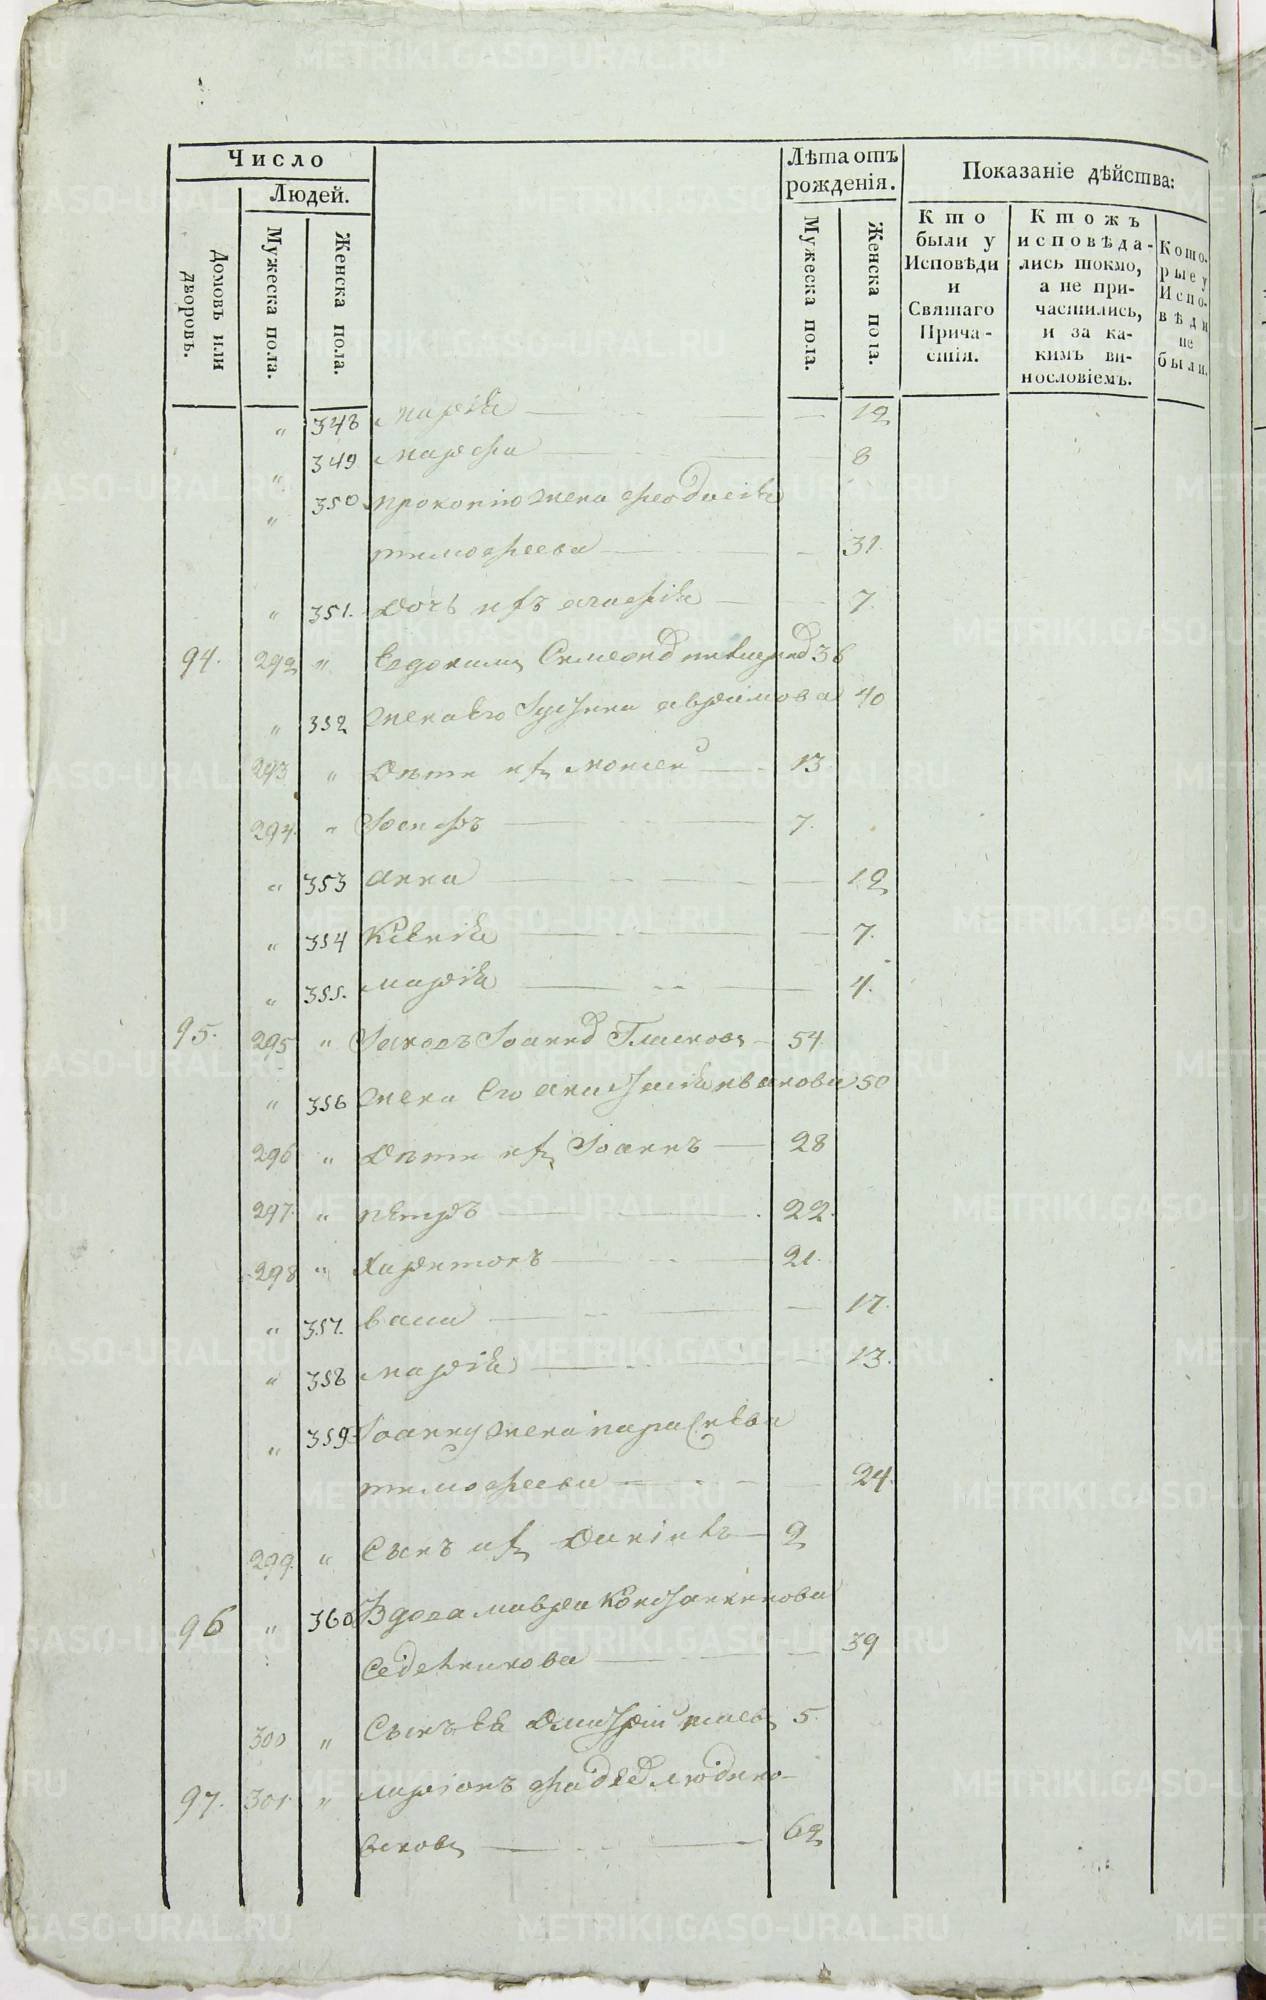 Число
Людей.
Домовъ или дворовъ.
Мужеска пола.
Женска пола.
Лѣта отъ рожденія.
Мужеска пола.
Женска пола.
Показаніе дѣйства:
Кто были у Исповѣди и Святаго Причастія.
Ктожъ исповѣдались токмо, а не причастились, и за какимъ винословіемъ.
Которые у Исповѣди не были.
„ 348 Марѳа 12
„ 349 Марфа 8
„ 350 Прокопію жена Феодосія
тимофеева 31.
„ 351. Дочь ихъ агафія 7.
94. 292 „ Евдокимъ Симеоновъ 36
„ 352 жена Его Іустина аврамова 40
293 „ Дѣти ихъ Моисей 13
294. „ Іосифъ 7.
„ 353 анна 12
„ 354 Ксенія 7.
„ 355. марія 4.
95. 295 „ Іаковъ Іоанновъ Гласковъ 54
„ 356 жена Его анастасія иванова 50
296 „ Дѣти ихъ Іоаннъ 28
297. „ петръ 22.
298 „ Харитонъ 21.
„ 357. васса 17.
„ 358 марія 13.
„ 359 Іоанну жена параскева
тимофеева 24.
299. „ Сынъ ихъ Даніилъ 2
96 „ 360 Вдова мавра Константинова
Седельникова 39
300 „ Сынъ Ея Димитрій 5.
97. 301. „ ларіонъ фадѣевъ людино-
всковъ 62
METRIKI.GASO-URAL.RU